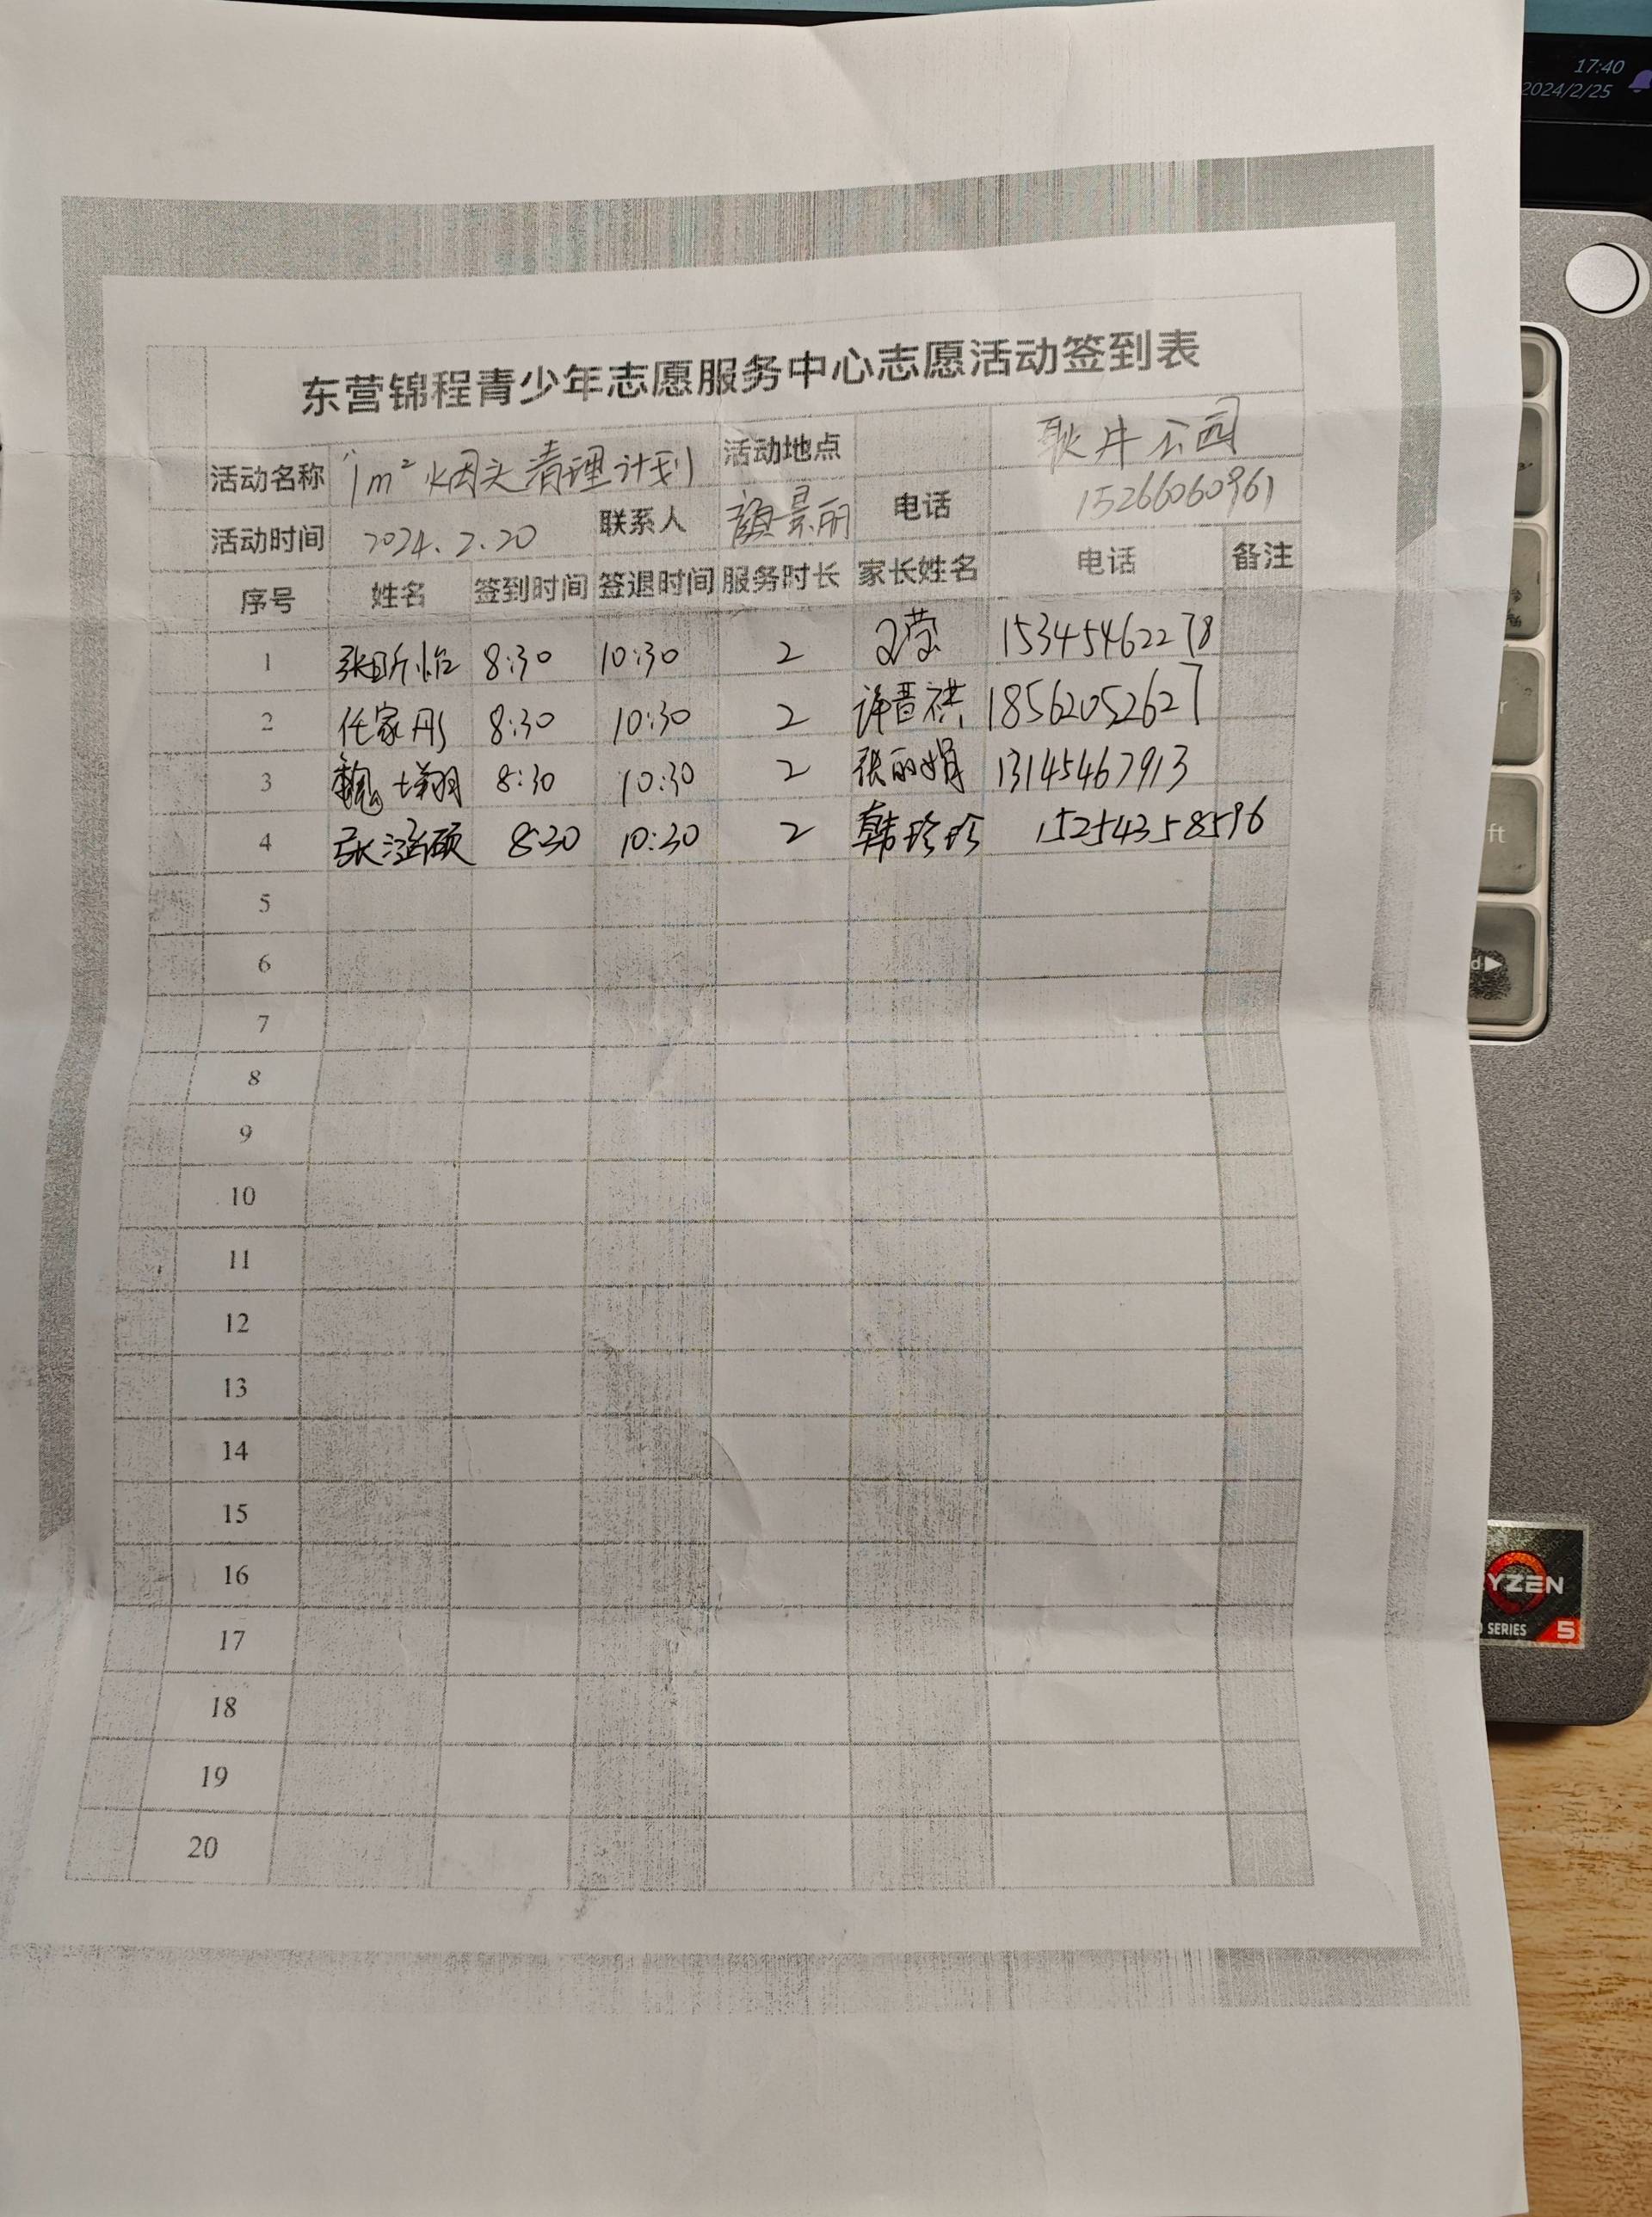 17:40
2024/2/25
东营锦程青少年志愿服务中心志愿活动签到表
活动名称 1m²烟头清理计划 活动地点 耿井公园
活动时间 2024.2.20 联系人 颜景丽 电话 15266060961
序号 姓名 签到时间 签退时间 服务时长 家长姓名 电话 备注
1 张昕怡 8:30 10:30 2 15345462278
2 任家彤 8:30 10:30 2 许晋祺 18562052627
3 魏 翔 8:30 10:30 2 张丽娟 13145467913
4 张涵硕 8:30 10:30 2 韩珍珍 15254358596
5
6
7
8
9
10
11
12
13
14
15
16
17
18
19
20
YZEN
SERIES 5